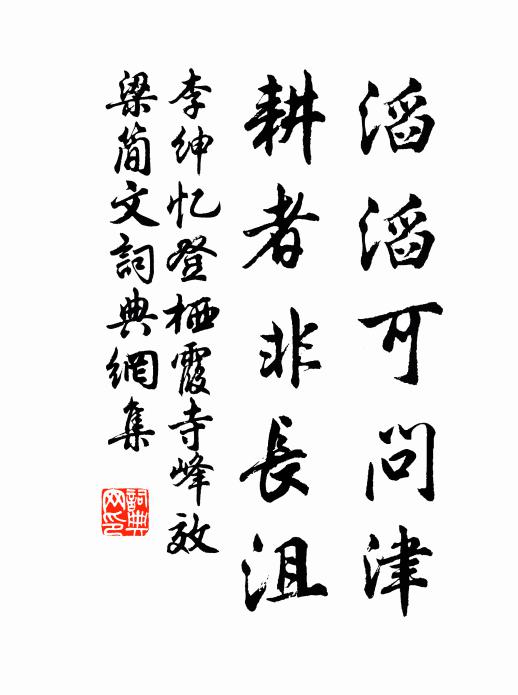 滔滔可问津
耕者非長沮
李绅忆登栖霞寺峰效
梁简文詞典網集
詞典网印